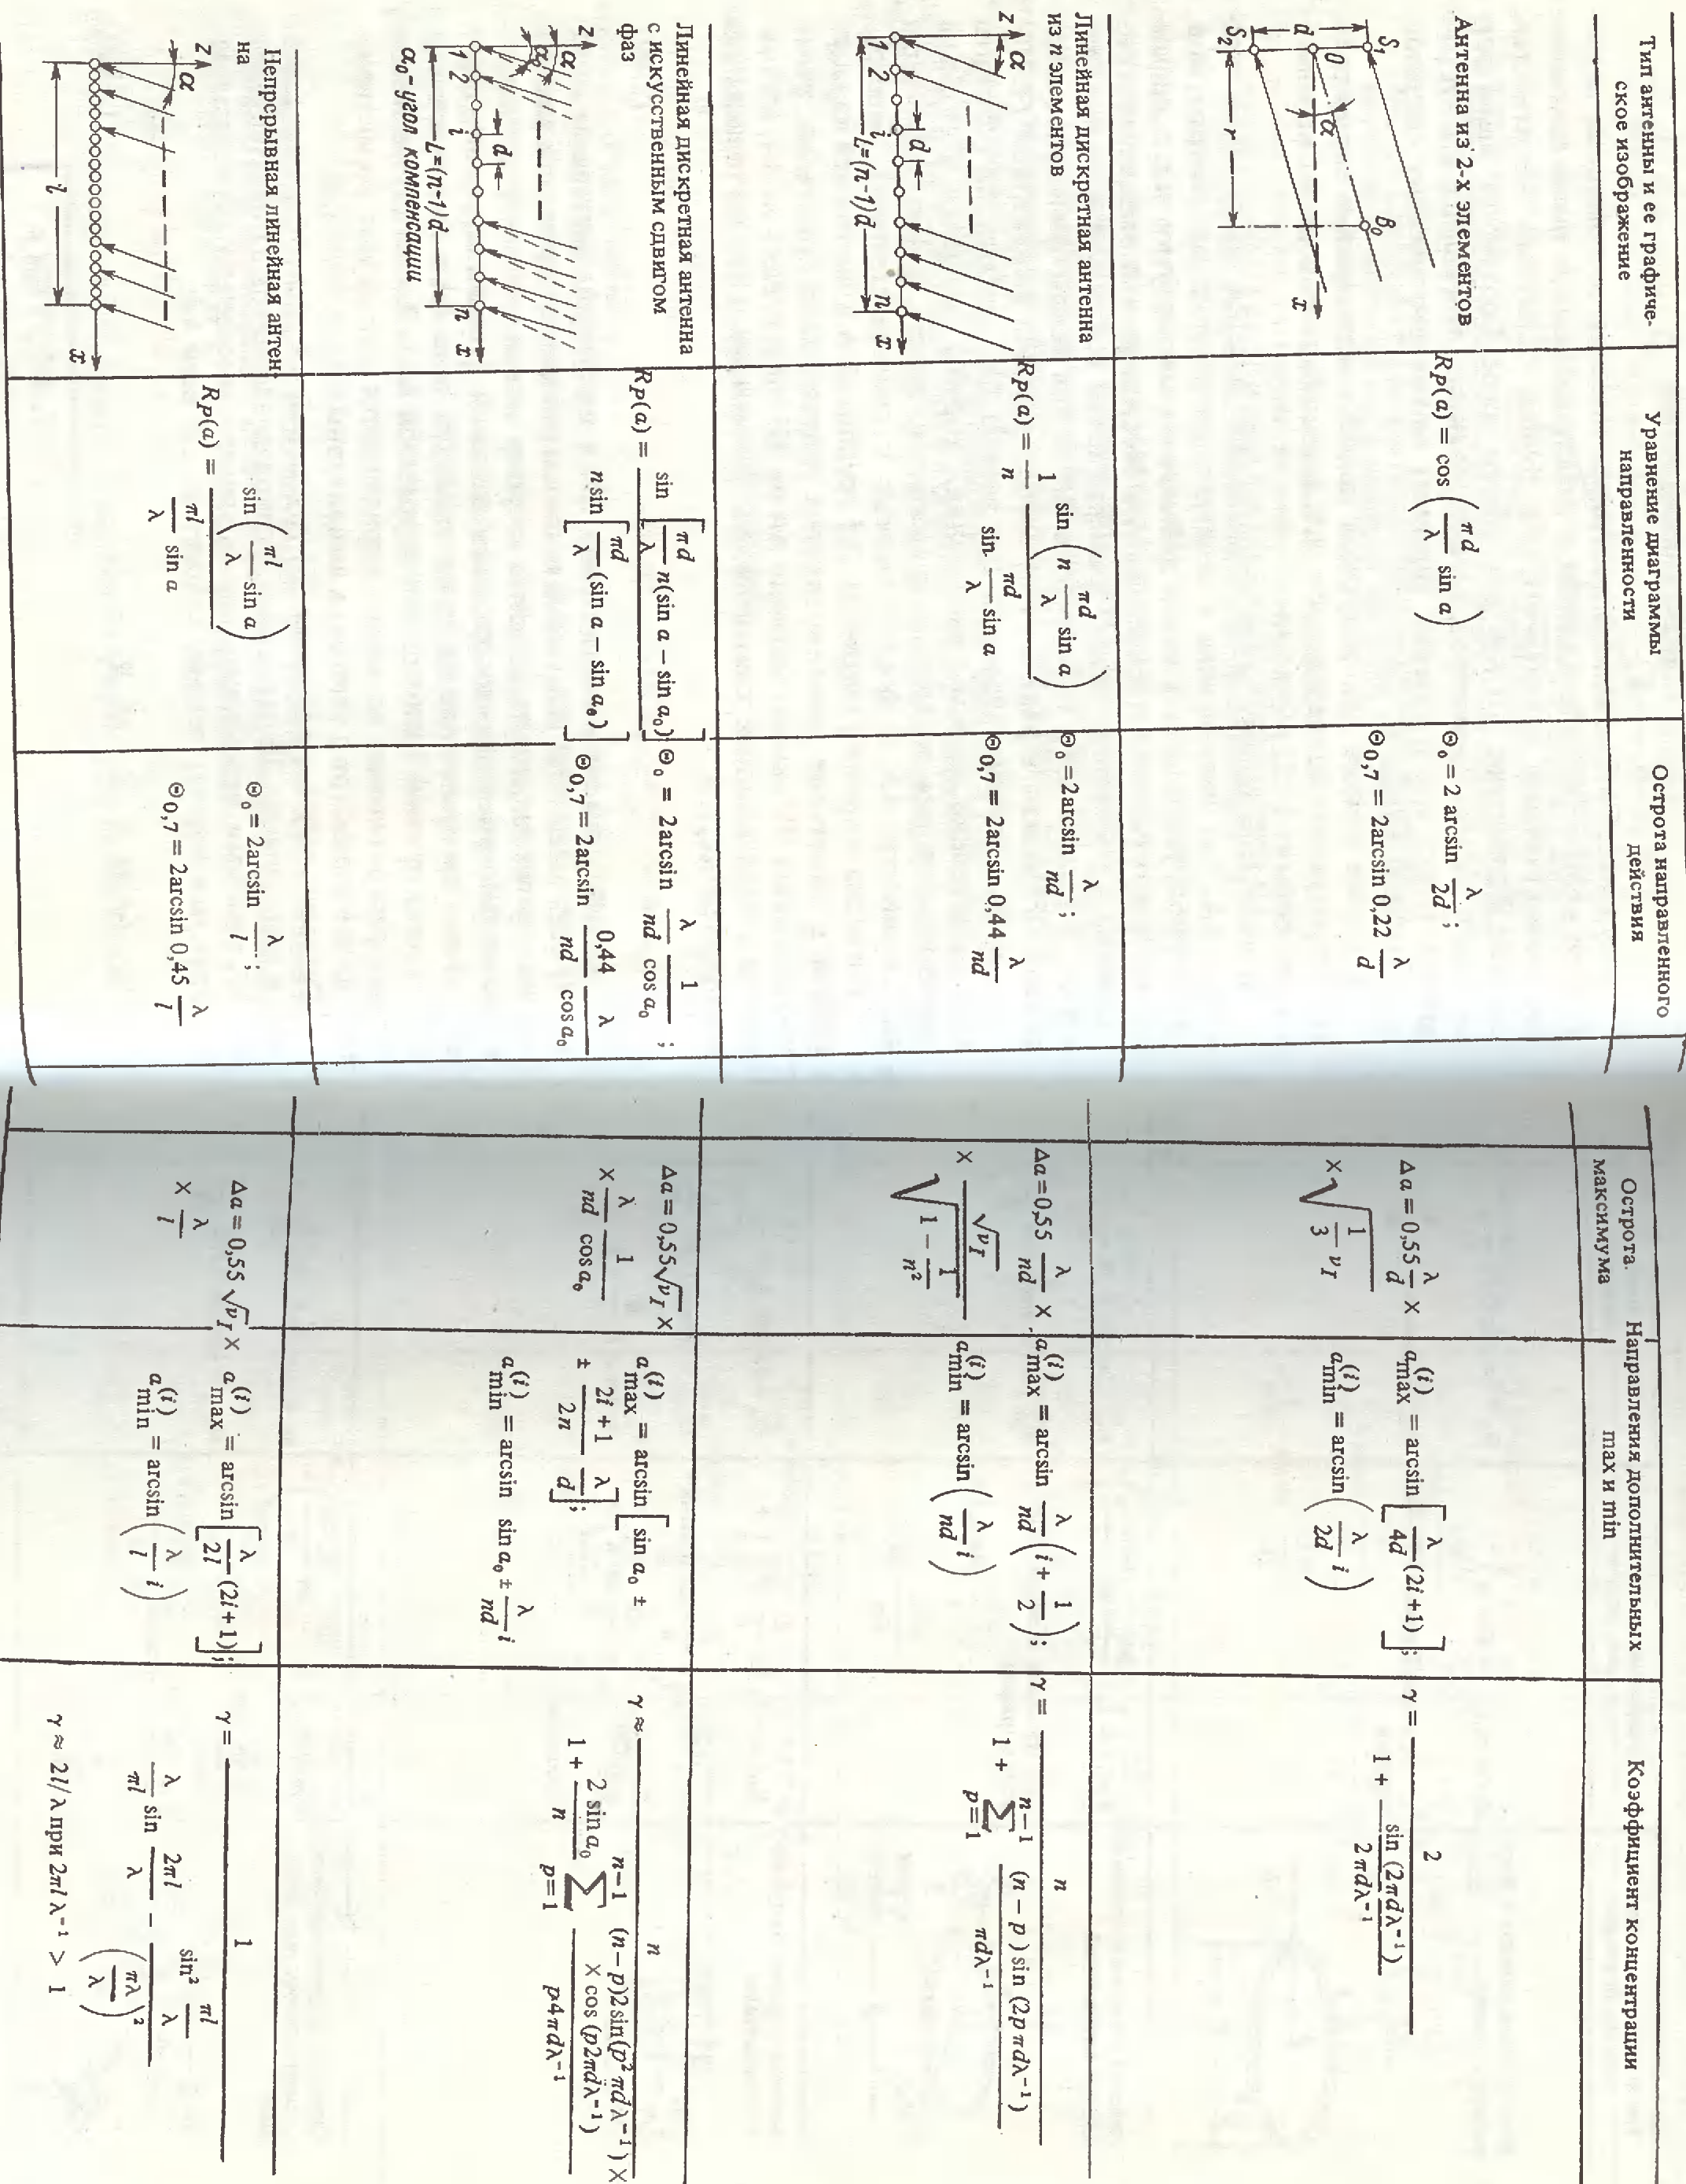 Тип антенны и ее графиче-
ское изображение
Уравнение диаграммы
направленности
Острота направленного
действия
Острота
максимума
Направления дополнительных
max и min
Коэффициент концентрации
Антенна из 2-х элементов
S₁
O
d
S₂
α
r
B₀
x
Rp(a) = cos (πd/λ sin a)
Θ₀ = 2 arcsin λ/2d ;
Θ0,7 = 2arcsin 0,22 λ/d
Δa = 0,55 λ/d ×
× √(1/3 ν_I)
a(i)max = arcsin [λ/4d (2i+1)] ;
a(i)min = arcsin (λ/2d i)
γ = 2 / (1 + sin (2πdλ⁻¹)/2πdλ⁻¹)
Линейная дискретная антенна
из n элементов
z
α
1 2 i d n x
L=(n-1)d
Rp(a) = 1/n sin (n πd/λ sin a) / sin πd/λ sin a
Θ₀ = 2arcsin λ/nd ;
Θ0,7 = 2arcsin 0,44 λ/nd
Δa = 0,55 λ/nd ×
× √ν_I / √(1 − 1/n²)
a(i)max = arcsin λ/nd (i + 1/2) ;
a(i)min = arcsin (λ/nd i)
γ = n / (1 + Σ p=1 n−1 (n − p) sin (2pπdλ⁻¹) / πdλ⁻¹)
Линейная дискретная антенна
с искусственным сдвигом
фаз
z
α
α₀
1 2 i d n x
L=(n-1)d
α₀- угол компенсации
Rp(a) = sin [πd/λ n(sin a − sin a₀)] / n sin [πd/λ (sin a − sin a₀)]
Θ₀ = 2arcsin λ/nd 1/cos a₀ ;
Θ0,7 = 2arcsin 0,44/nd λ/cos a₀
Δa = 0,55√ν_I ×
× λ/nd 1/cos a₀
a(i)max = arcsin [sin a₀ ±
± 2i + 1/2n λ/d] ;
a(i)min = arcsin sin a₀ ± λ/nd i
γ ≈ n / (1 + 2 sin a₀/n Σ p=1 n−1 (n−p)2sin(p²πdλ⁻¹) × × cos (p2πdλ⁻¹) / p4πdλ⁻¹)
Непрерывная линейная антен-
на
z
α
l
x
Rp(a) = sin (πl/λ sin a) / πl/λ sin a
Θ₀ = 2arcsin λ/l ;
Θ0,7 = 2arcsin 0,45 λ/l
Δa = 0,55 √ν_I ×
× λ/l
a(i)max = arcsin [λ/2l (2i+1)] ;
a(i)min = arcsin (λ/l i)
γ = 1 / (λ/πl sin 2πl/λ − sin² πl/λ / (πλ/λ)²)
γ ≈ 2l/λ при 2πlλ⁻¹ > 1